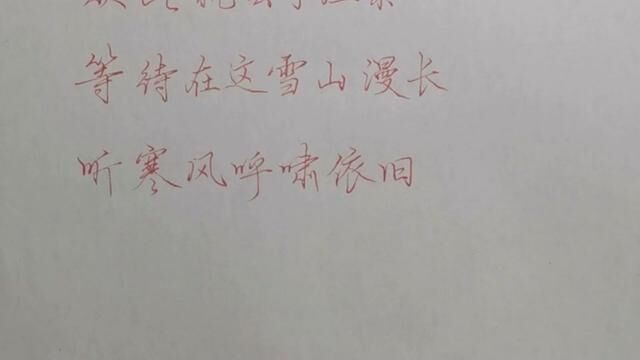 等待在这雪山漫长
听寒风呼啸依旧